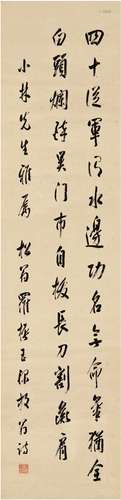 四十從軍渭水邊功名無命氣猶全
白頭爛醉吳門市自拔長刀割彘肩
小林先生雅屬 松翁羅振玉錄放翁詩